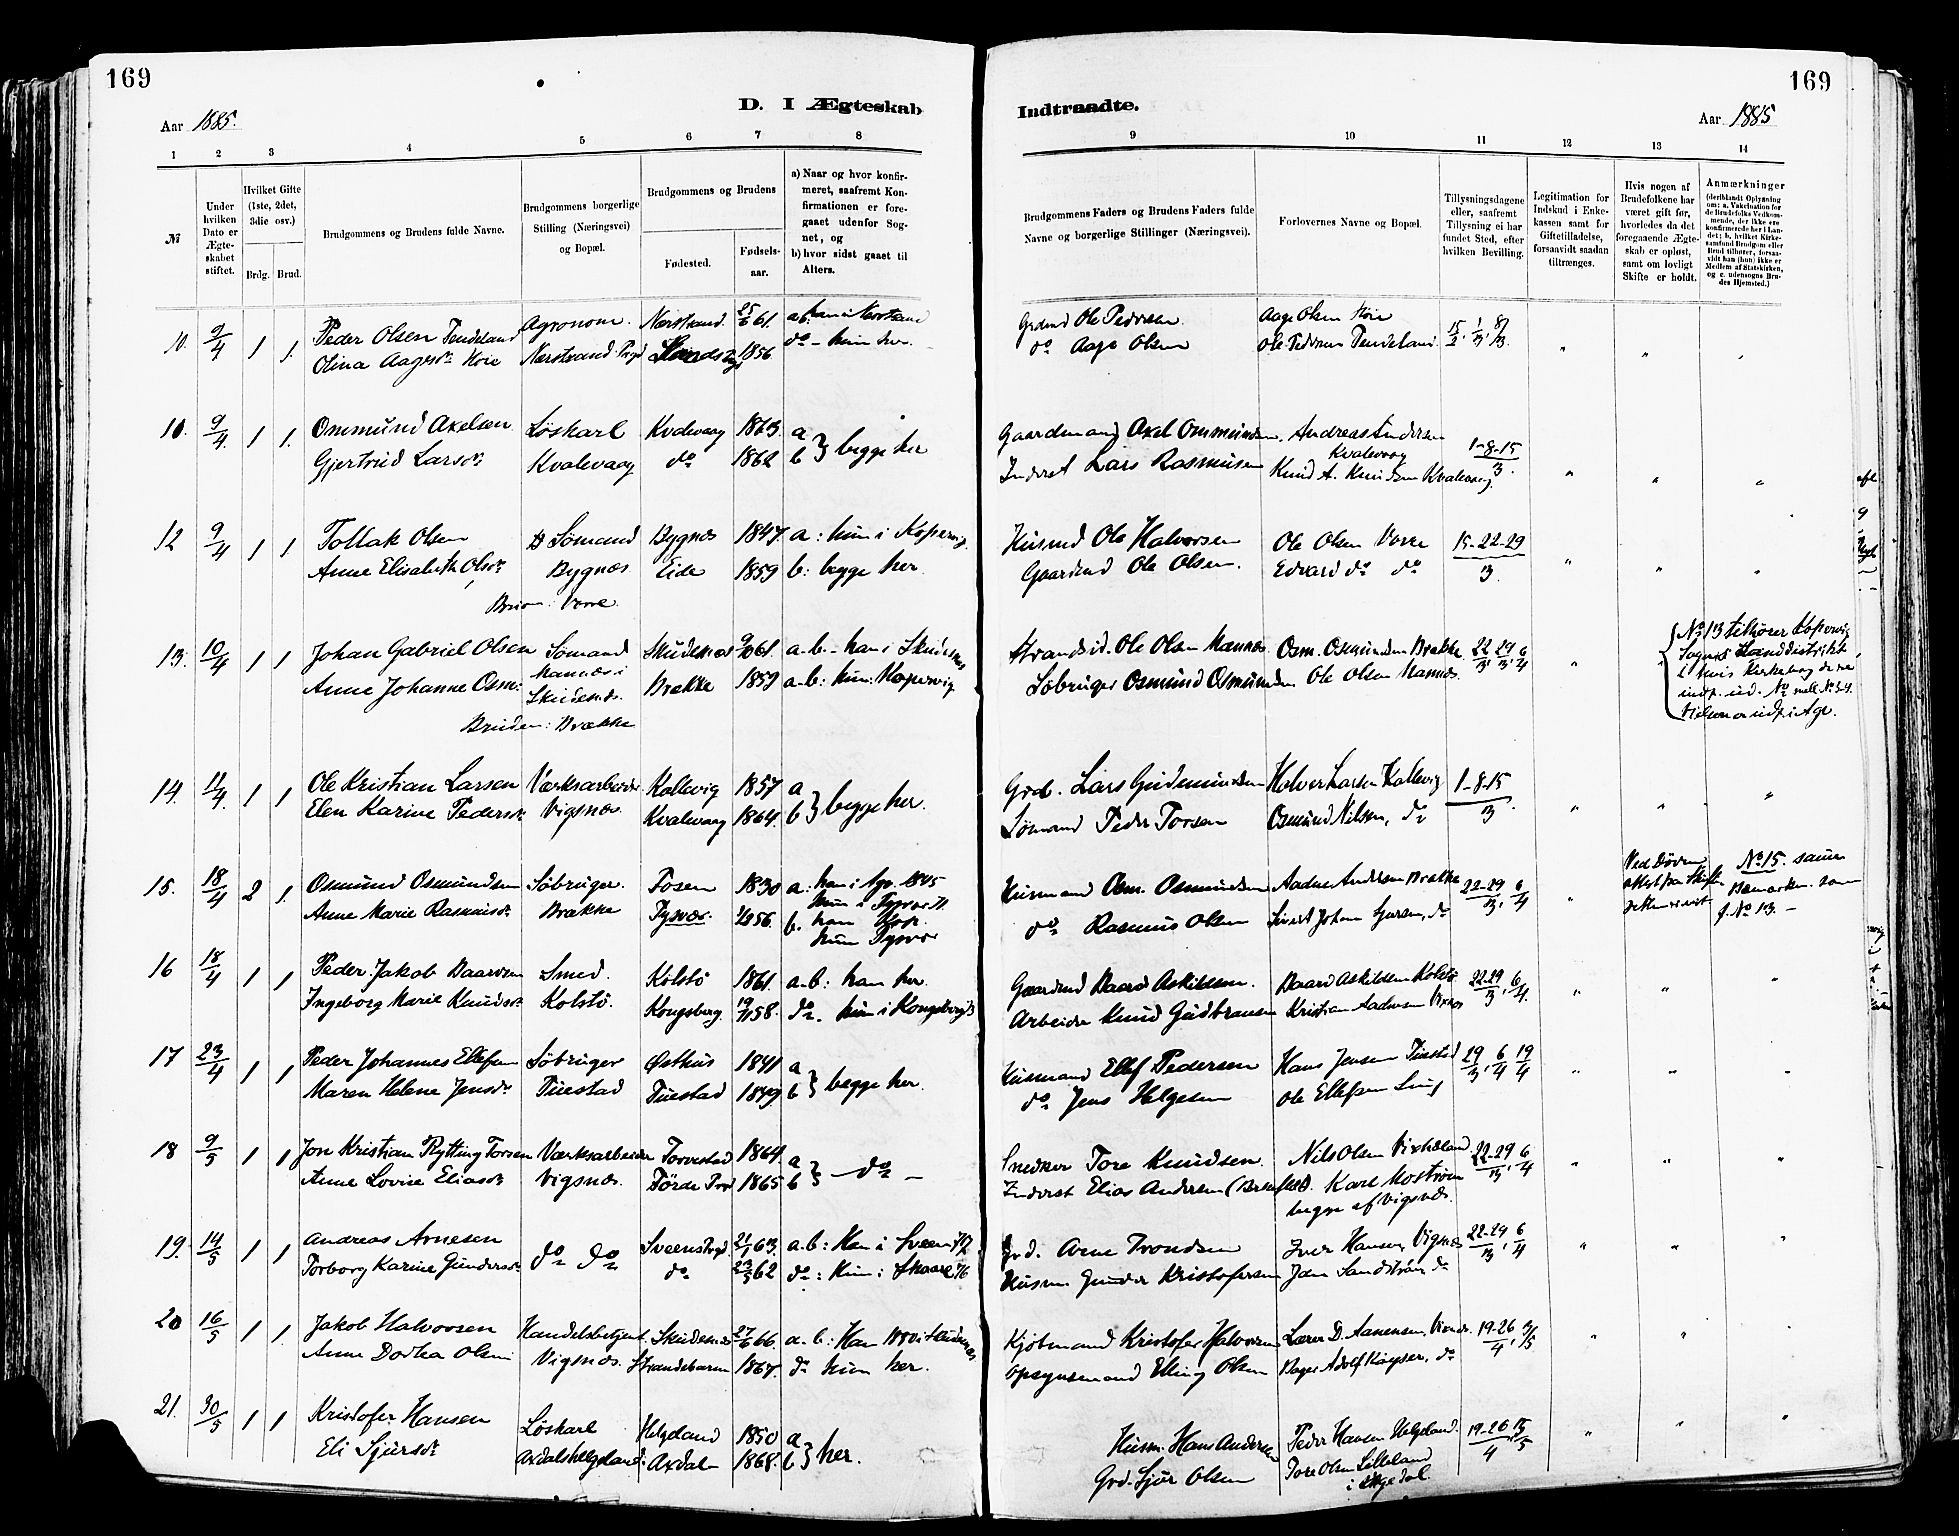 169
169
D. I Ægteskab Indtraadte.
Aar 1885.
Aar 1885
1 2 3 4 5 6 7 8
9 10 11 12 13 14
№
Under hvilken Dato er Ægteskabet stiftet.
Hvilket Gifte (1ste, 2det, 3die osv.)
Brdg. Brud.
Brudgommens og Brudens fulde Navne.
Brudgommens borgerlige Stilling (Næringsvei) og Bopæl.
Brudgommens og Brudens
Fødested. Fødselsaar.
a) Naar og hvor konfirmeret, saafremt Konfirmationen er foregaaet udenfor Sognet, og
b) hvor sidst gaaet til Alters.
Brudgommens Faders og Brudens Faders fulde Navne og borgerlige Stillinger (Næringsvei).
Forlovernes Navne og Bopæl.
Tillysningsdagene eller, saafremt Tillysning ei har fundet Sted, efter hvilken Bevilling.
Legitimation for Indskud i Enkekassen samt for Giftetilladelse, forsaavidt saadan tiltrænges.
Hvis nogen af Brudefolkene har været gift før, hvorledes da det foregaaende Ægteskab er opløst, samt om lovligt Skifte er holdt.
Anmærkninger (deriblandt Oplysning om: a. Vakcination for de Brudefolks Vedkommende, der ikke ere konfirmerede her i Landet; b. hvilket Kirkesamfund Brudgom eller Brud tilhører, forsaavidt han (hun) ikke er Medlem af Statskirken, og c. udensogns Brudes Hjemsted.)
10. 9/4 1 1. Peder Olsen Tendeland Agronom. Nerstrand 25/6 61.
Olina Aagesd. Høie Nerstrand 1856 do - hun her.
Grdmd Ole Pedersen. Aage Olsen Høie
do Aage Olsen Ole Pedersen Tendeland.
10. 9/4 1 1. Ommund Axelsen Løskarl Kvalevaag 1863 a
Gjertrud Larsd. Kvalevaag do 1862 b } begge her
Gaardmand Axel Ommundsen. Andreas Andersen Kvalevaag 1-8-15/3.
Inderst Lars Rasmussen Knud A. Knudsen Kvalevaag.
12 9/4 1 1 Tollak Olsen Sømand Bygnes 1847. a: hun i Kopervig
Anne Elisabeth Olsd. Bygnes Eide 1859 b: begge her.
Brud: Vorre.
Husmd Ole Halvorsen Ole Olsen Vorre 15-22-29/3.
Gaardmd Ole Olsen. Edvard do do
13. 10/4 1 1 Johan Gabriel Olsen Sømand Skudenes 9/10 61. a-b- han i Skudenes
Anne Johanne Osm. Mannes i Skudenes. Brække 1859 a-b: hun: Kopervig
Bruden: Brække
Strandsid. Ole Olsen Mannes Osm. Osmundsen Brække. 22/3, 29/3, 6/4
Søbruger Osmund Osmundsen Ole Olsen Mannes.
No 13 tilhører Kopervig Sogns Landdistrikt i hvis Kirkebog de ere
14. 11/4. 1 1 Ole Kristian Larsen Værksarbeider Kallevig 1857 a
Elen Karine Pedersd. Vigsnes. Kvalevaag 1864. b } begge her.
Grdb. Lars Gudmundsen Halvor Larsen Kallevig 1-8-15/3.
Sømand Peder Torsen Osmund Nilsen, do
15. 18/4 2 1. Osmund Osmundsen Søbruger. Fosen 1830 a: han i Ag. 1845
Anne Marie Rasmusd. Brække Tysvær. 56. hun i Tysvær
b. han Kop. hun Tysvær
Husmand Osm. Osmundsen Aadne Andersen Brække 22-29/3, 6/4
do Rasmus Olsen
No 15. samme Bemærkn. som f. No 13. -
16 18/4 1 1 Peder Jakob Baardsen Smed. Kolstø 1861. a-b: han her.
Ingeborg Marie Knudsd. Kolstø. Kongsberg 58. do. hun i Kongsberg
Gaardmd Baard Askildsen. Baard Askildsen Kolstø 22-29/3, 6/4.
Arbeider Knud Gudbransen Kristian Aadnesen
17 23/4 1 1 Peder Johannes Ellefsen Søbruger Østhus 1841 a
Maren Helene Jensd. Tuestad Tuestad 1849 b } begge her.
Husmand Ellef Pedersen Hans Jensen Tuestad 29/3, 6/4 19/4
do Jens Helgesen Ole Ellefsen
18 9/5 1 1 Jon Kristian Rytting Torsen Værksarbeider Torvestad 1864. a
Anne Lovise Eliasd. Vigsnes. Førde 1865 b } do -
Snedker Tore Knudsen. Nils Olsen 22-29/3, 6/4
Inderst Elias Andersen Karl Mostrøm begge af Vigsnes.
19. 14/5 1 1 Andreas Arnesen do do Sveens 21/1 63. a-b: Han i Sveen
Torborg Karine Gundersd. do. 23/5 62 do: Hun i Skaare
Grd. Arne Trondsen Iver Hansen, Vigsnes 22-29/3, 6/4
Husm. Gunder Kristofersen Jon Sandstrøm do
20 16/5 1 1. Jakob Halvorsen Handelsbetjent. Skudenes 27/6 66. a-b: Han
Anne Dortea Olsen Vigsnes. Strandebarm 1867. do hun her.
Kjøbmand Kristofer Halvorsen Lærer D. Aanensen, 19-26/4, 3/5
Opsynsmand Elling Olsen Bager Adolf Kayser, do
21. 30/5 1 1 Kristofer Hansen Løskarl Helgeland 1850 a
Eli Sjursd. Axdalshelgeland. Axdal 1868. b } her.
Husm. Hans Andersen Peder Hansen Helgeland. 19-26/4
Grd. Sjur Olsen Tore Olsen Lilleland